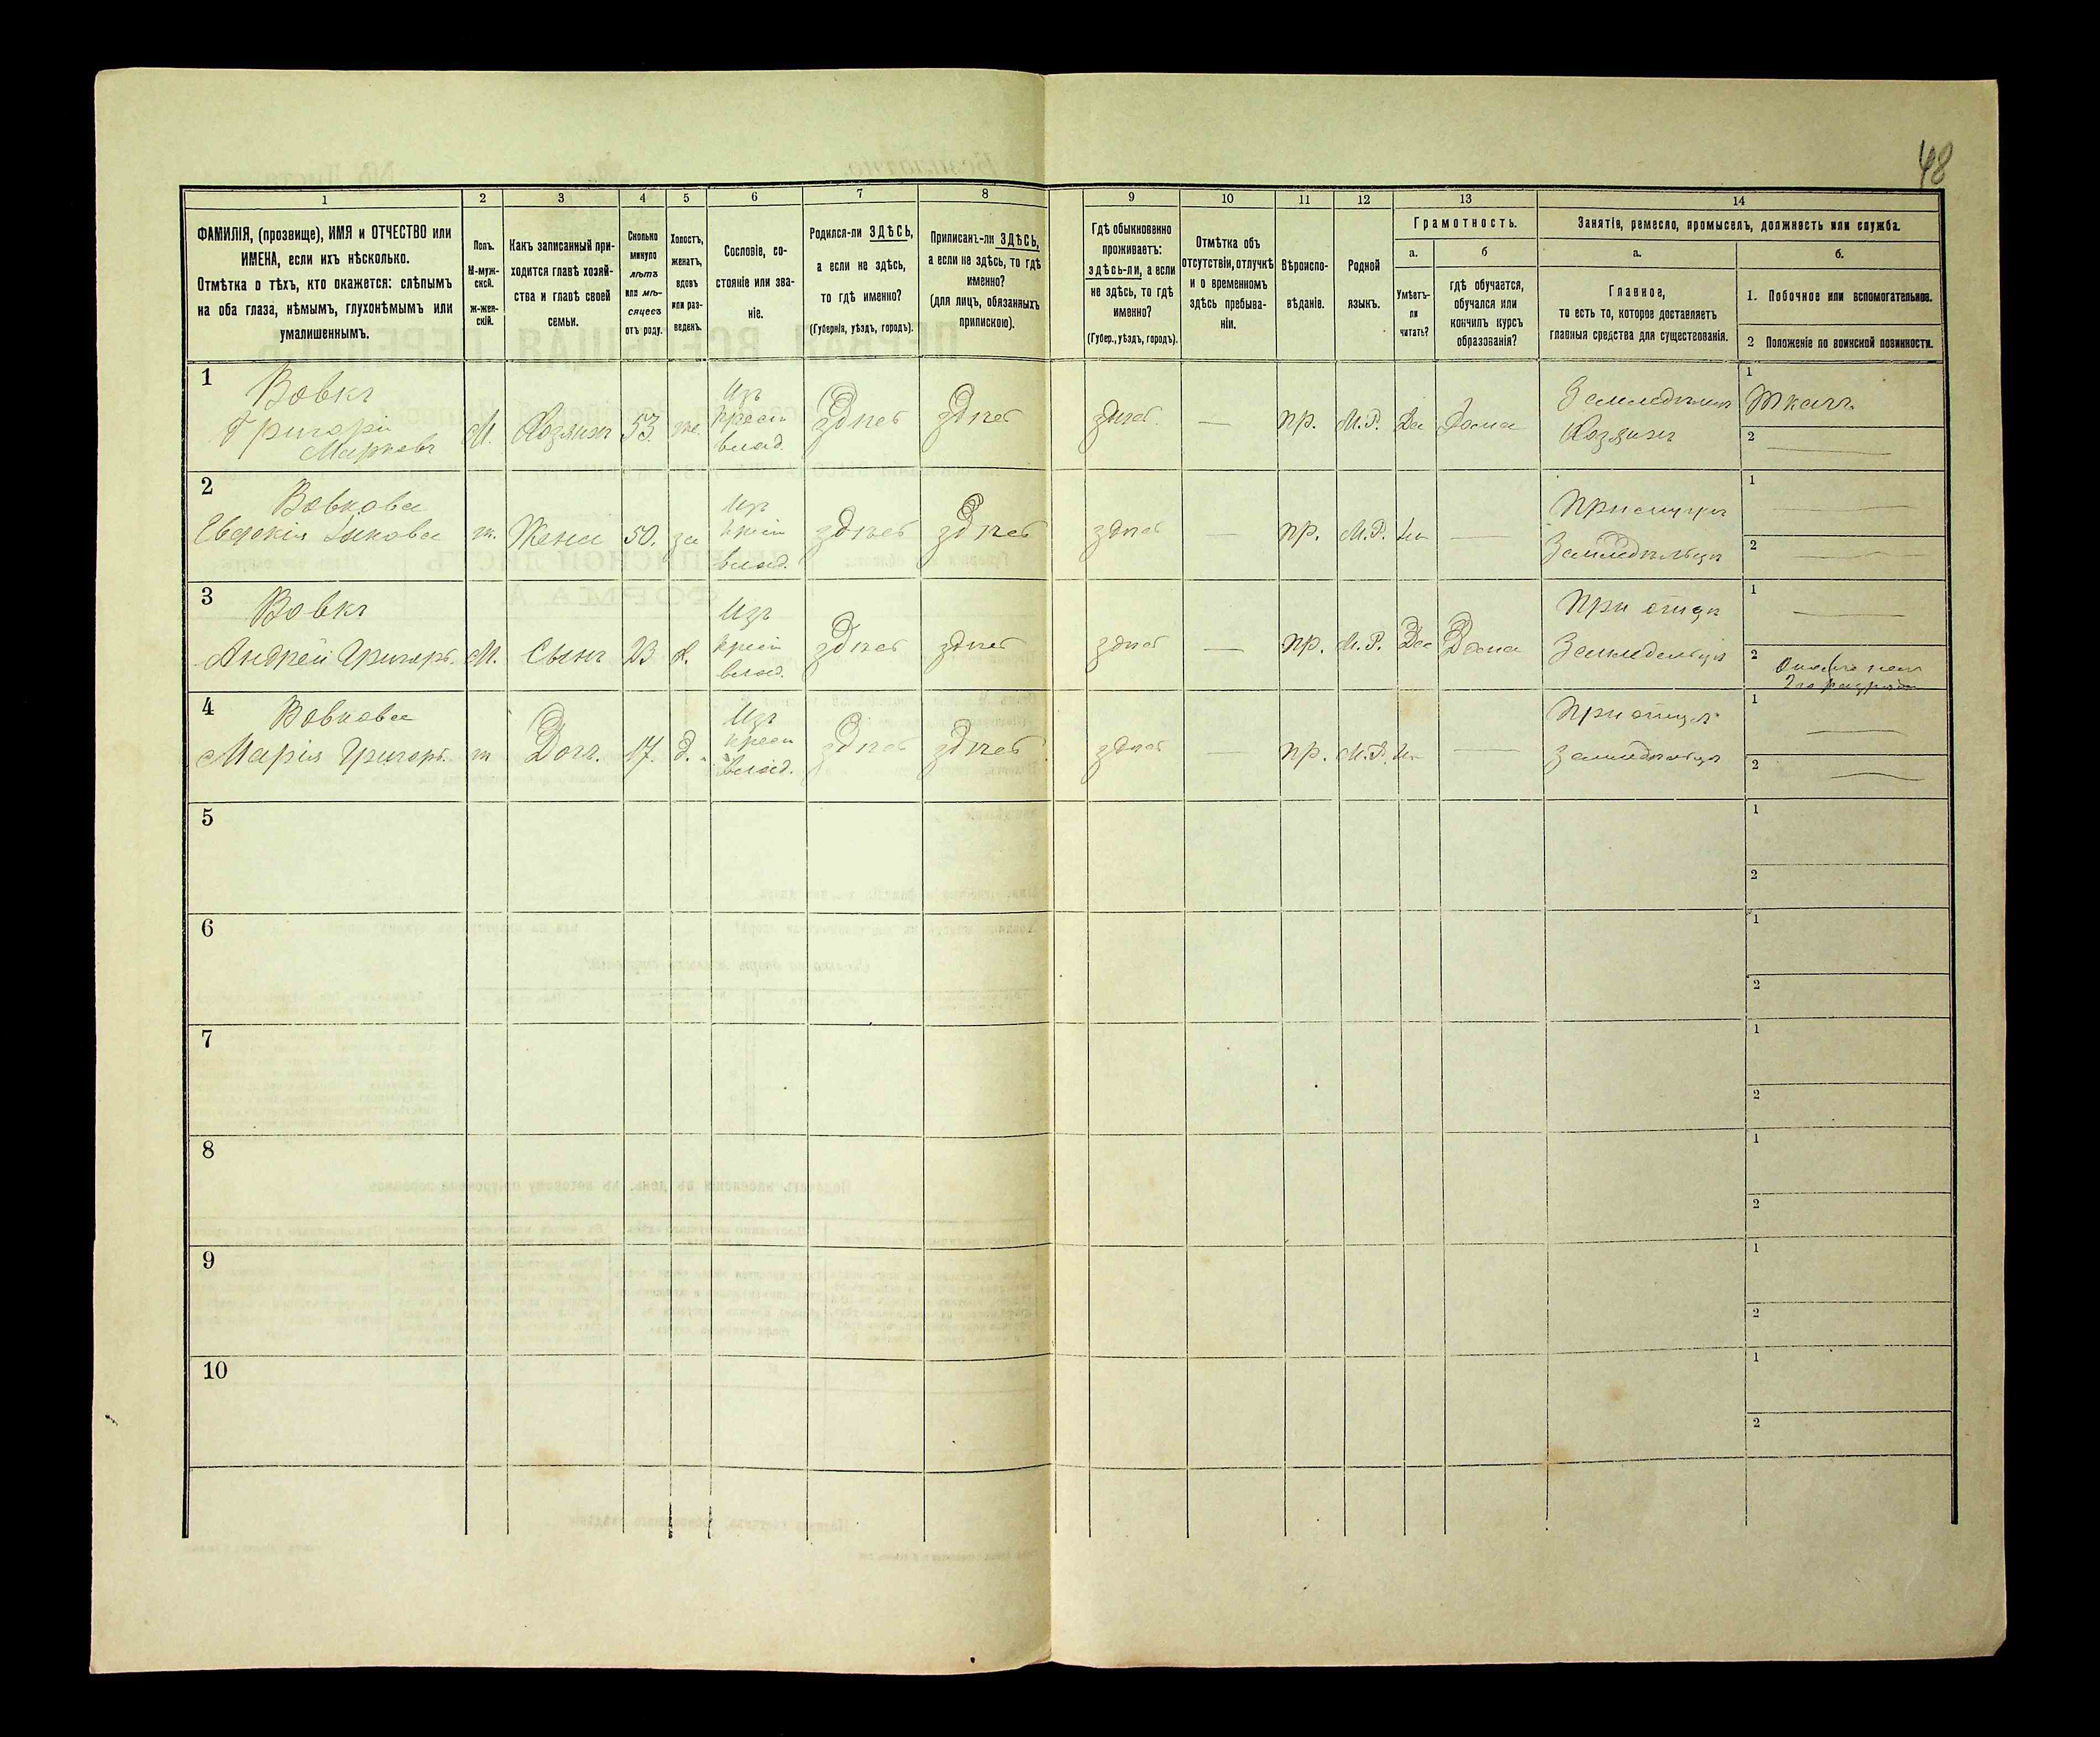 48
1
2
3
4
5
6
7
8
9
10
11
12
13
14
ФАМИЛІЯ, (прозвище), ИМЯ и ОТЧЕСТВО или
ИМЕНА, если ихъ нѣсколько.
Отмѣтка о тѣхъ, кто окажется: слѣпымъ
на оба глаза, нѣмымъ, глухонѣмымъ или
умалишеннымъ.
Полъ.
М-муж-
ской.
Ж-жен-
скій.
Какъ записанный при-
ходится главѣ хозяй-
ства и главѣ своей
семьи.
Сколько
минуло
лѣтъ
или мѣ-
сяцевъ
отъ роду.
Холостъ,
женатъ,
вдовъ
или раз-
веденъ.
Сословіе, со-
стояніе или зва-
ніе.
Родился-ли ЗДѢСЬ,
а если не здѣсь,
то гдѣ именно?
(Губернія, уѣздъ, городъ).
Приписанъ-ли ЗДѢСЬ,
а если не здѣсь, то гдѣ
именно?
(для лицъ, обязанныхъ
припискою).
Гдѣ обыкновенно
проживаетъ:
здѣсь-ли, а если
не здѣсь, то гдѣ
именно?
(Губер., уѣздъ, городъ).
Отмѣтка объ
отсутствіи, отлучкѣ
и о временномъ
здѣсь пребыва-
ніи.
Вѣроиспо-
вѣданіе.
Родной
языкъ.
Грамотность.
а.
Умѣетъ-
ли
читать?
б
гдѣ обучается,
обучался или
кончилъ курсъ
образованія?
Занятіе, ремесло, промыселъ, должность или служба.
а.
Главное,
то есть то, которое доставляетъ
главныя средства для существованія.
б.
1. Побочное или вспомогательное.
2 Положеніе по воинской повинности.
1
Вовкъ
Григорій
Марковъ
М.
Хозяинъ
53.
же.
Изъ
крест
влад.
здѣсь
здѣсь
здѣсь
—
пр.
М.Р.
Да
Дома
Хозяинъ
1
Ткачъ
2
2
Вовкова
ж.
Жена
50.
за
Изъ
крест
влад.
здѣсь
здѣсь
здѣсь
—
пр.
М.Р.
—
При мужѣ
1
2
3
Вовкъ
Андрей Григорь.
М.
Сынъ
23
х.
Изъ
крест
влад.
здѣсь
здѣсь
здѣсь
—
пр.
М.Р.
Да
Дома
При отцѣ
1
2
2го разряда
4
Вовкова
Марія Григорь.
ж
Доч.
17.
д.
Изъ
крест
влад.
здѣсь
здѣсь
здѣсь
—
пр.
М.Р.
—
При отцѣ
1
2
5
1
2
6
1
2
7
1
2
8
1
2
9
1
2
10
1
2